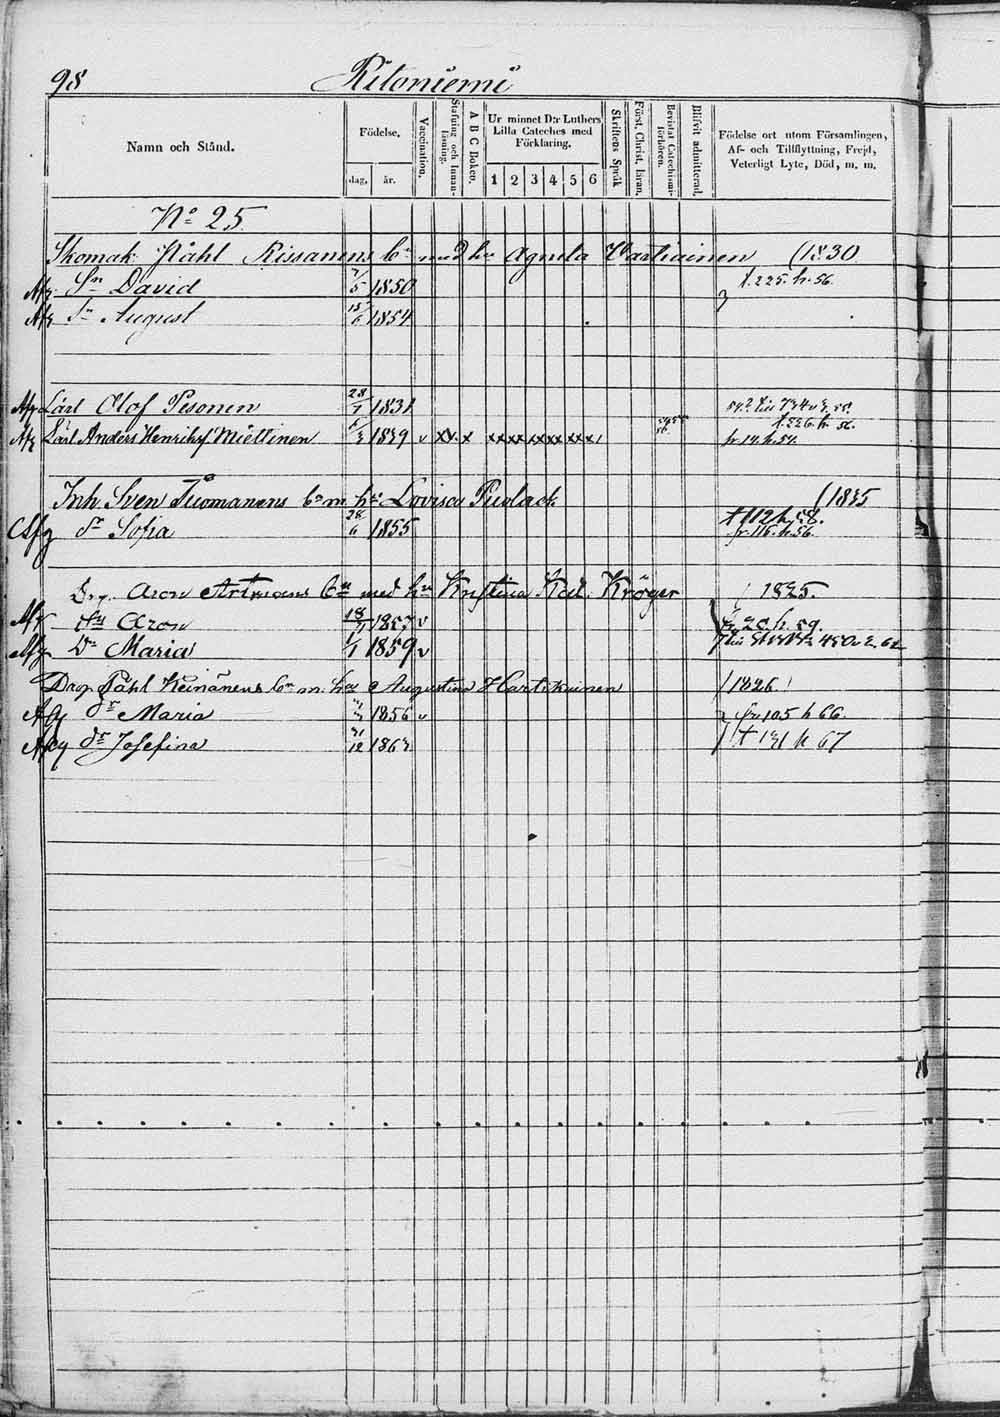 98 Ritoniemi
Namn och Stånd.
Födelse,
dag, år.
Vaccination.
Stafning och Innanläsning.
A B C Boken.
Ur minnet D:r Luthers Lilla Cateches med Förklaring.
1 2 3 4 5 6
Skriftens Språk
Först. Christ. läran.
Bevistat Catechismiförhören.
Blifvit admitterad.
Födelse ort utom Församlingen, Af- och Tillflyttning, Frejd, Veterligt Lyte, Död, m. m.
No 25
Skomak. Påhl Rissanens bn med hu Agneta Wartiainen (1830
Sn David 5 1850 t. 225. h. 56.
Sn August 15/6 1854
Lärl Olof Pesonen 28/7 1831
Lärl Anders Henrik Miettinen 1839 v xx x x xxxx xxxx xxx fr. 14. h. 54. t. 226. h. 56.
Inh. Sven Tuomanens bn m. hu Lovisa Puolack (1835
dr Sofia 28/6 1855 † 112 h. 58. fr. 116. h. 56.
Drg. Aron bn med hu Kristina Kat. Kröger 1825.
Sn Aron 18 1857 v 20. h. 59.
Dr Maria 1/1 1859 v
Drag Påhl Keinänens bn m. hu Augustina Hartikainen 1826.
dr Maria 1856 v fr. 105 h 66.
dr Josefina 12 186 † 131 h 67